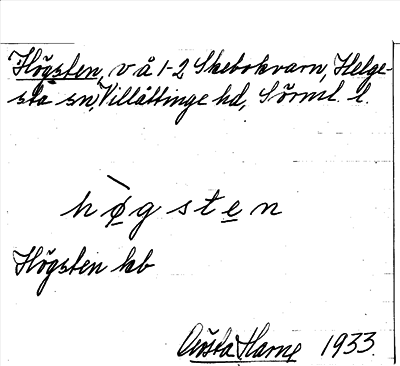 Högsten, v å 1-2 Skebokvarn, Helge-
sta sn, Villåttinge hd, Sörml. l.
hø̀gsten
Högsten kb
Gösta Harne 1933.